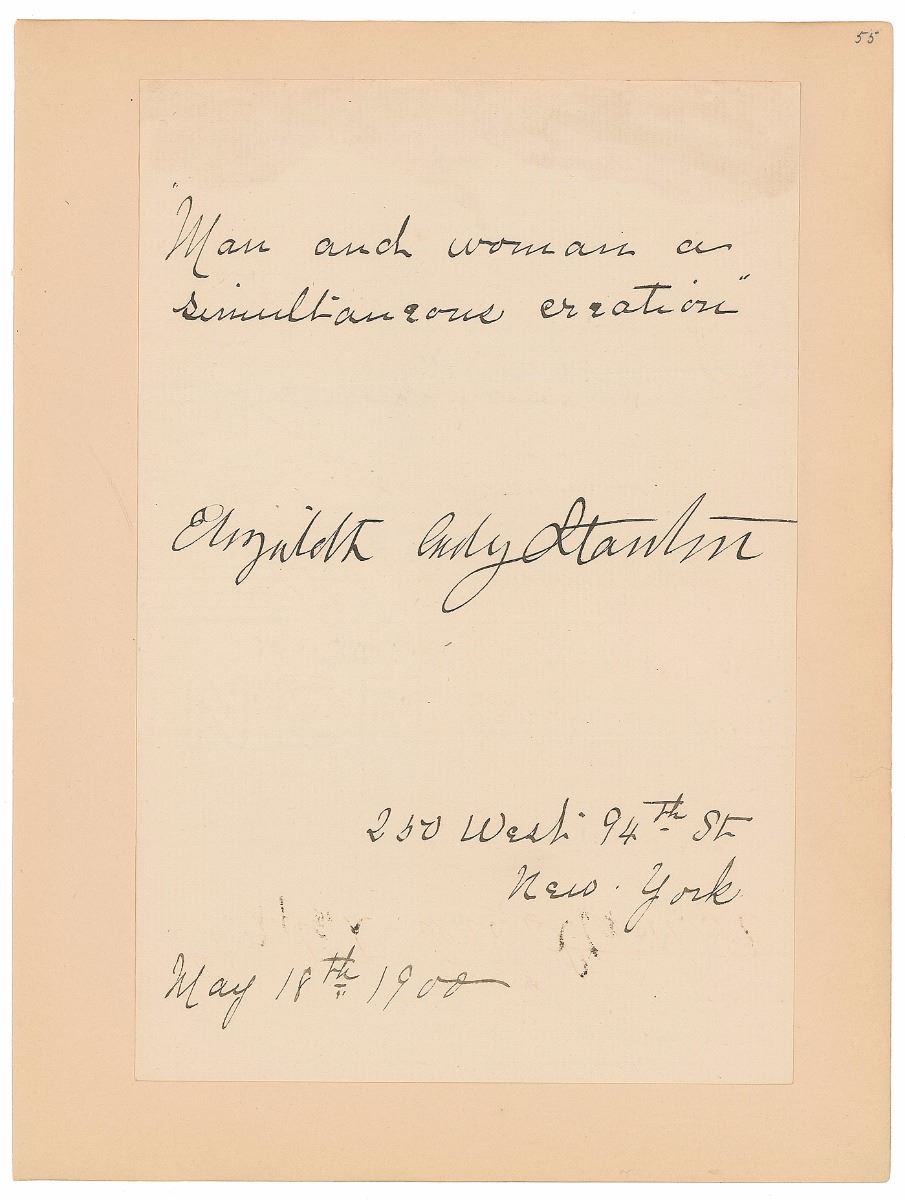 55
"Man and woman a
simultaneous creation"
Elizabeth Cady Stanton
250 West 94th St
New York
May 18th 1900